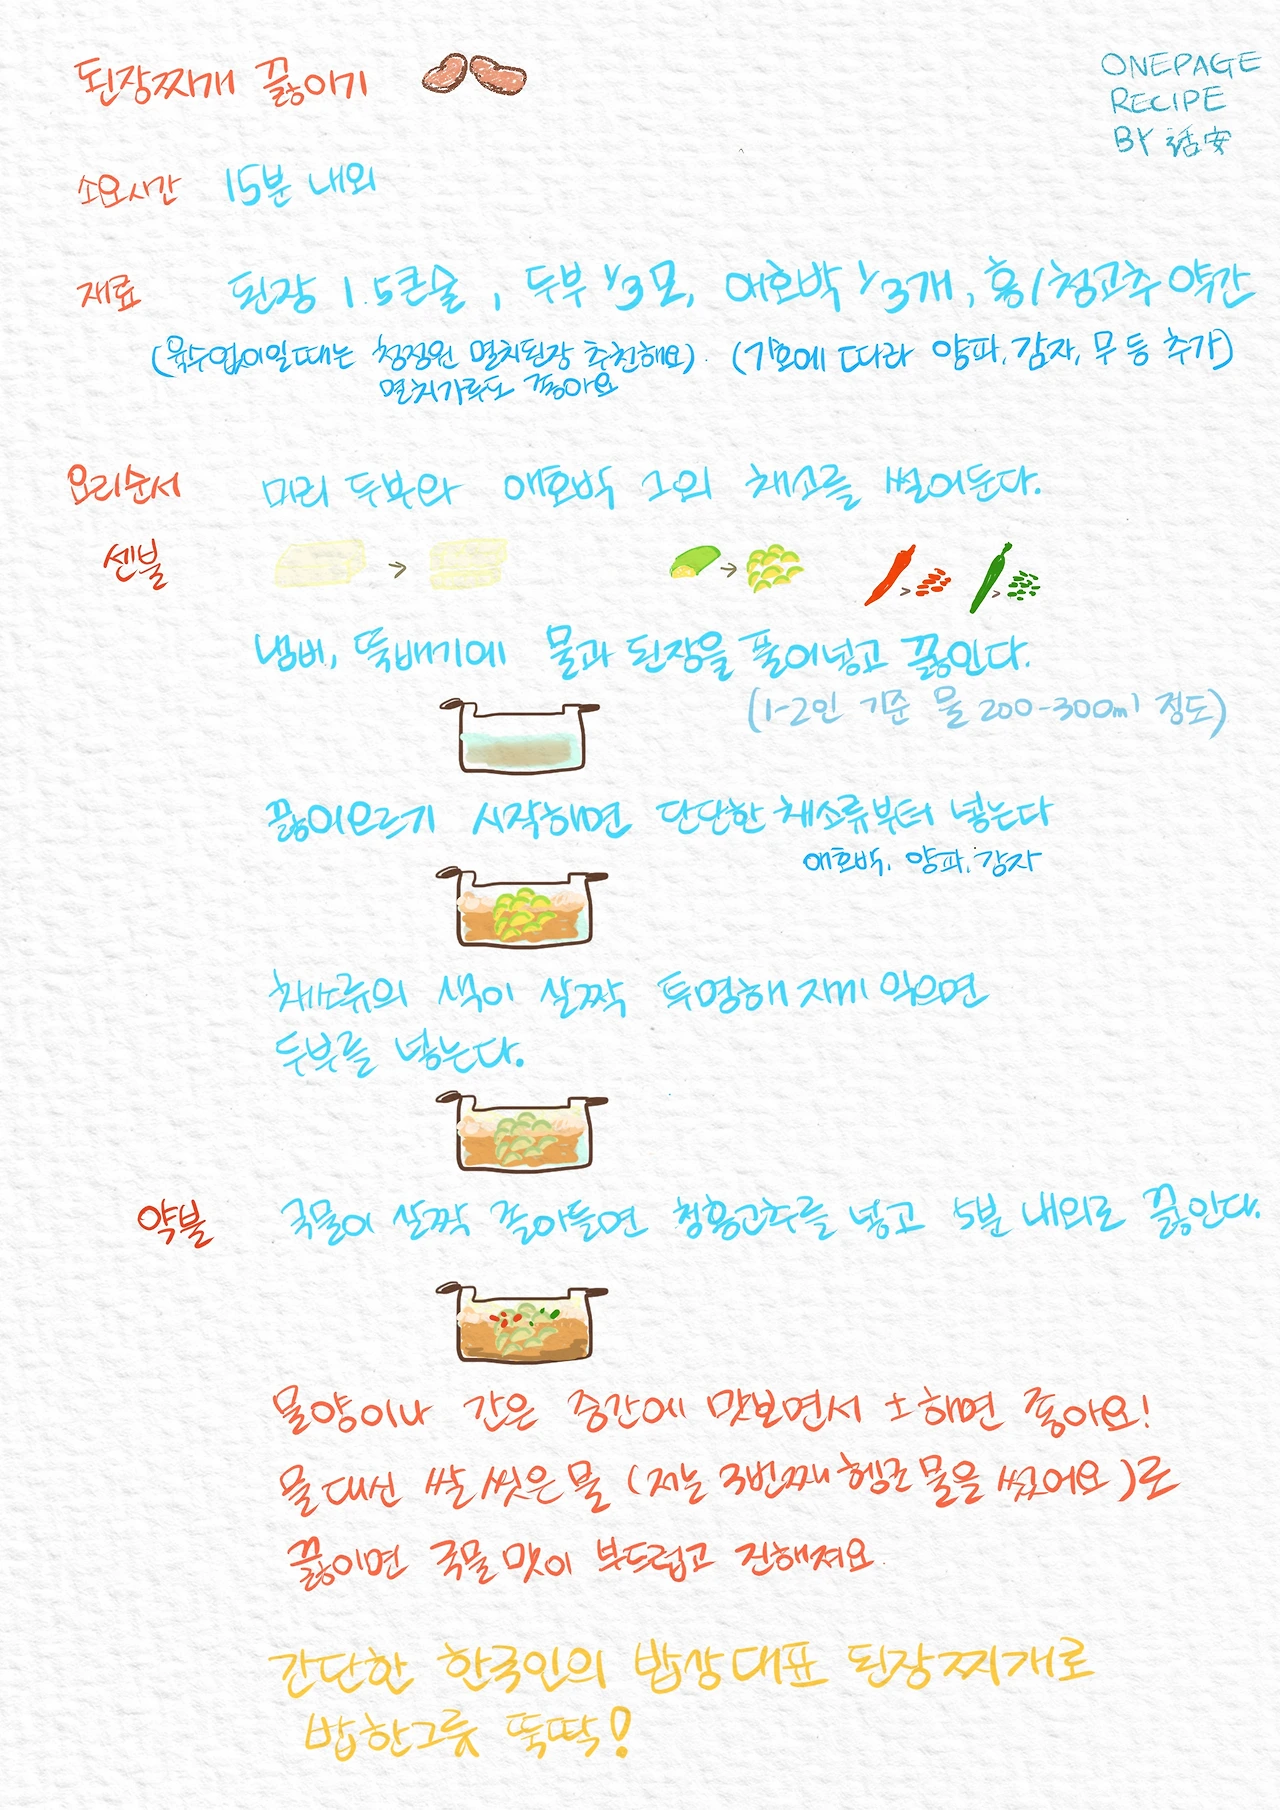 된장찌개 끓이기
ONEPAGE
RECIPE
BY 話安
소요시간 15분 내외
재료 된장 1.5큰술, 두부 1/3모, 애호박 1/3개, 홍/청고추 약간
(육수없이일때는 청정원 멸치된장 추천해요). (기호에 따라 양파, 감자, 무 등 추가)
멸치가루도 좋아요
요리순서 미리 두부와 애호박 그외 채소를 썰어둔다.
센불
냄비, 뚝배기에 물과 된장을 풀어넣고 끓인다.
(1-2인 기준 물 200-300ml 정도)
끓어오르기 시작하면 단단한 채소류부터 넣는다
애호박, 양파, 감자
채소류의 색이 살짝 투명해 지게 익으면
두부를 넣는다.
약불 국물이 살짝 졸아들면 청홍고추를 넣고 5분 내외로 끓인다.
물양이나 간은 중간에 맛보면서 ±하면 좋아요!
물 대신 쌀 씻은 물 (저는 3번째 헹군 물을 썼어요)로
끓이면 국물 맛이 부드럽고 진해져요.
간단한 한국인의 밥상 대표 된장찌개로
밥한그릇 뚝딱!